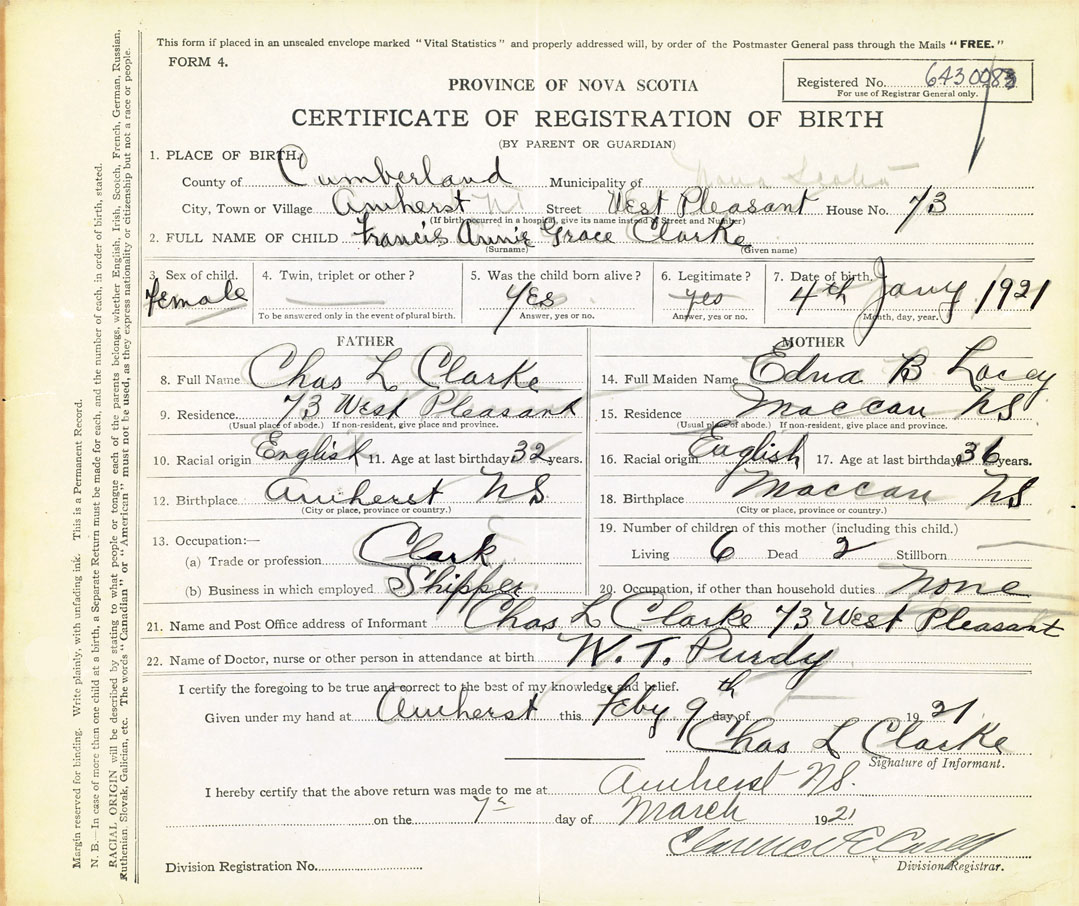 This form if placed in an unsealed envelope marked "Vital Statistics" and properly addressed will, by order of the Postmaster General pass through the Mails "FREE."
FORM 4.
PROVINCE OF NOVA SCOTIA
Registered No. 6430083
For use of Registrar General only.
CERTIFICATE OF REGISTRATION OF BIRTH
(BY PARENT OR GUARDIAN)
1. PLACE OF BIRTH,
County of Cumberland Municipality of Nova Scotia
City, Town or Village Amherst NS Street West Pleasant House No. 73
(If birth occurred in a hospital, give its name instead of Street and Number)
2. FULL NAME OF CHILD Francis Annie Grace Clarke
(Surname) (Given name)
3. Sex of child. Female
4. Twin, triplet or other?
To be answered only in the event of plural birth.
5. Was the child born alive? Yes
Answer, yes or no.
6. Legitimate? yes
Answer, yes or no.
7. Date of birth. 4th Jany 1921
Month, day, year.
FATHER
8. Full Name Chas L Clarke
9. Residence. 73 West Pleasant
(Usual place of abode.) If non-resident, give place and province.
10. Racial origin English 11. Age at last birthday 32 years.
12. Birthplace Amherst NS
(City or place, province or country.)
13. Occupation:—
(a) Trade or profession Clark
(b) Business in which employed Shipper
MOTHER
14. Full Maiden Name Edna B Lacey
15. Residence Maccan NS
(Usual place of abode.) If non-resident, give place and province.
16. Racial origin English 17. Age at last birthday 36 years.
18. Birthplace Maccan NS
(City or place, province or country.)
19. Number of children of this mother (including this child.)
Living 6 Dead 2 Stillborn
20. Occupation, if other than household duties none
21. Name and Post Office address of Informant Chas L Clarke 73 West Pleasant
22. Name of Doctor, nurse or other person in attendance at birth W. T. Purdy
I certify the foregoing to be true and correct to the best of my knowledge and belief.
Given under my hand at Amherst this Feby 9th day of 1921
Chas L Clarke
Signature of Informant.
I hereby certify that the above return was made to me at Amherst NS.
on the 7 day of March 1921
Clarence E
Division Registrar.
Division Registration No.
Margin reserved for binding. Write plainly, with unfading ink. This is a Permanent Record.
N. B.—In case of more than one child at a birth, a Separate Return must be made for each, and the number of each, in order of birth, stated.
RACIAL ORIGIN will be described by stating to what people or tongue each of the parents belongs, whether English, Irish, Scotch, French, German, Russian,
Ruthenian, Slovak, Galician, etc. The words "Canadian" or "American" must not be used, as they express nationality or citizenship but not a race or people.